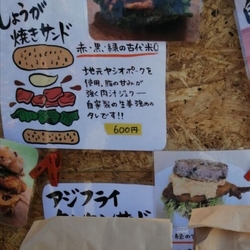 しょうが
焼きサンド
赤・黒・緑の古代米
地元ヤシオポークを
使用。豚の甘みが
強く肉汁ジュワー
自家製の生姜強めの
タレです!!
600円
アジフライ